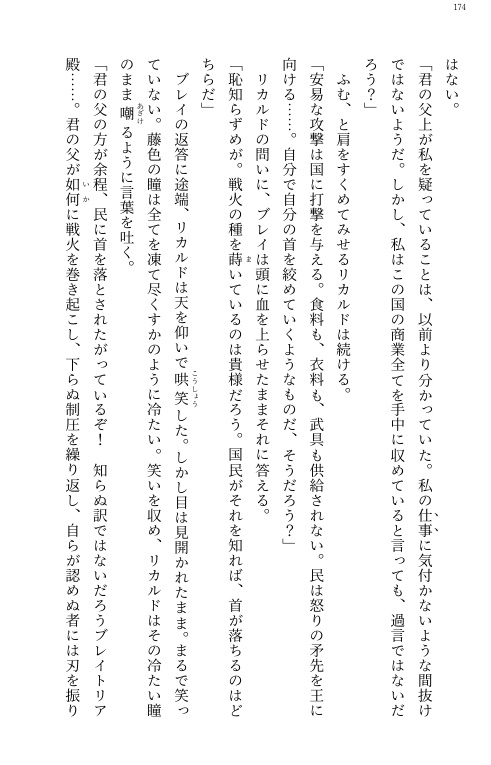 174
はない。
「君の父上が私を疑っていることは、以前より分かっていた。私の仕事に気付かないような間抜け
ではないようだ。しかし、私はこの国の商業全てを手中に収めていると言っても、過言ではないだ
ろう？」
ふむ、と肩をすくめてみせるリカルドは続ける。
「安易な攻撃は国に打撃を与える。食料も、衣料も、武具も供給されない。民は怒りの矛先を王に
向ける……。自分で自分の首を絞めていくようなものだ、そうだろう？」
リカルドの問いに、ブレイは頭に血を上らせたままそれに答える。
「恥知らずめが。戦火の種を蒔いているのは貴様だろう。国民がそれを知れば、首が落ちるのはど
ちらだ」
ブレイの返答に途端、リカルドは天を仰いで哄笑した。しかし目は見開かれたまま。まるで笑っ
ていない。藤色の瞳は全てを凍て尽くすかのように冷たい。笑いを収め、リカルドはその冷たい瞳
のまま嘲るように言葉を吐く。
「君の父の方が余程、民に首を落とされたがっているぞ！　知らぬ訳ではないだろうブレイトリア
殿……。君の父が如何に戦火を巻き起こし、下らぬ制圧を繰り返し、自らが認めぬ者には刃を振り